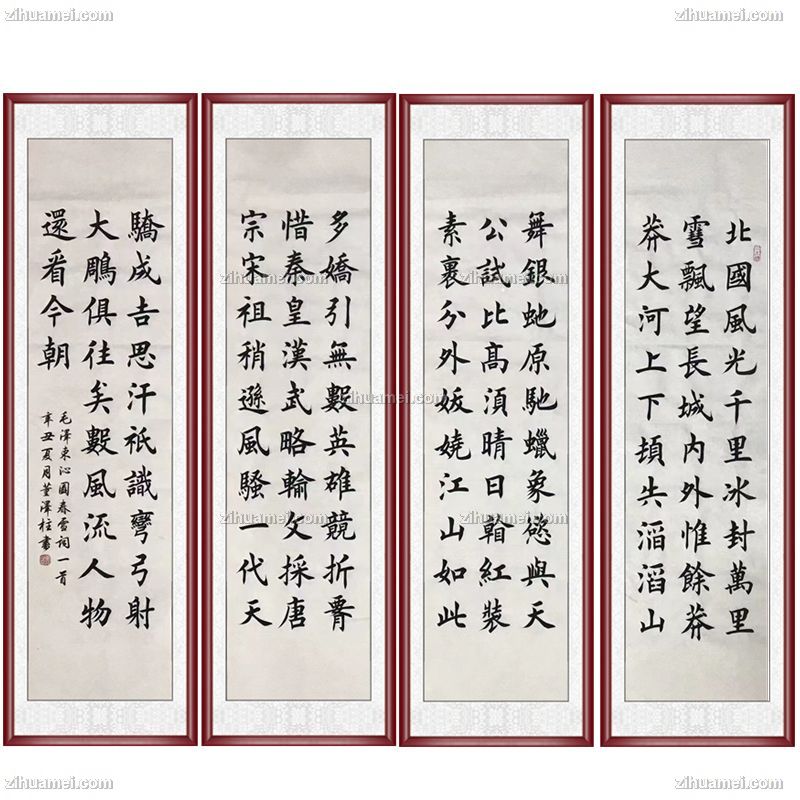 北國風光千里冰封萬里
雪飄望長城內外惟餘莽
莽大河上下頓失滔滔山
舞銀虵原馳蠟象慾與天
公試比高須晴日看紅裝
素裹分外妖嬈江山如此
多嬌引無數英雄競折腰
惜秦皇漢武略輸文採唐
宗宋祖稍遜風騷一代天
驕成吉思汗祇識彎弓射
大鵰俱往矣數風流人物
還看今朝
毛澤東沁園春雪詞一首
辛丑夏月董澤柱書
zihuamei.com